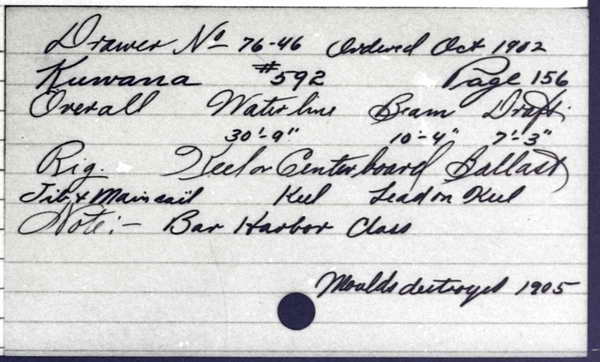 Drawer No 76-46 Ordered Oct 1902
Kuwana #592 Page 156
Overall Water line Beam Draft.
30'-9" 10'-4" 7'-3"
Rig. Keel or Centerboard Ballast
Jib & Mainsail Keel Lead on Keel
Note:- Bar Harbor Class
Moulds destroyed 1905